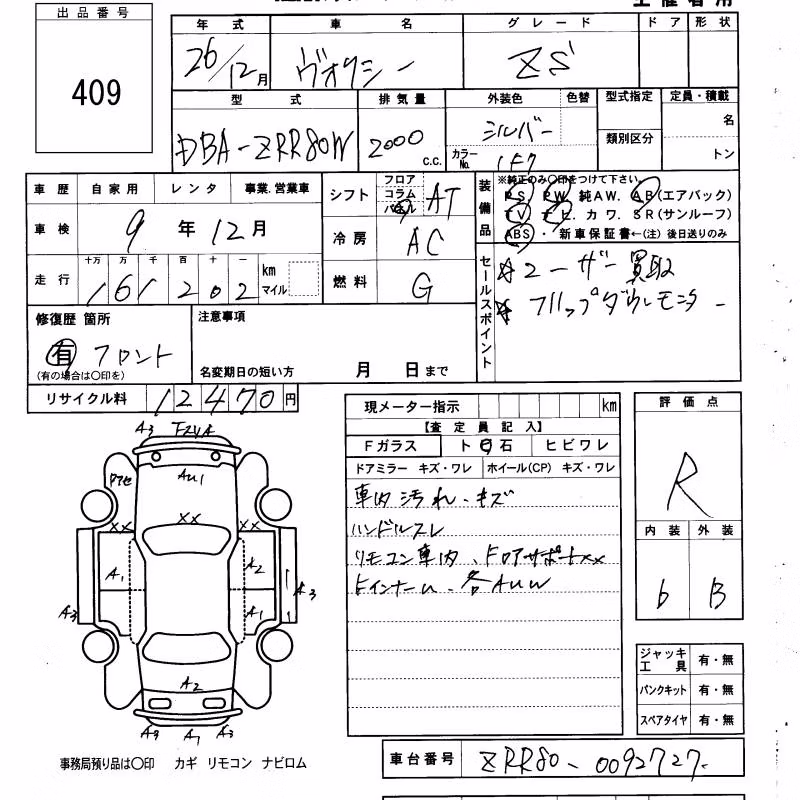 出品番号
409
年式 車名 グレード ドア 形状
26/12月 ヴォクシー ZS
型式 排気量 外装色 色替 型式指定 定員・積載
DBA-ZRR80W 2000 c.c. シルバー
カラーNo. 1F7 類別区分 名 トン
車歴 自家用 レンタ 事業.営業車
車検 9年12月
走行 十万 万 千 百 十 一 km マイル
161202
シフト フロア コラム パネル AT
冷房 AC
燃料 G
装備品 ※純正のみ○印をつけて下さい。
PS. PW. 純AW. AB(エアバック)
TV. ナビ. カワ. SR(サンルーフ)
ABS ・ 新車保証書←(注) 後日送りのみ
セールスポイント
ユーザー買取
フリップダウンモニター
修復歴 箇所
有 フロント
(有の場合は○印を)
注意事項
名変期日の短い方 月 日まで
リサイクル料 12470円
現メーター指示 km
【査定員記入】
Fガラス ト石 ヒビワレ
ドアミラー キズ・ワレ ホイール(CP) キズ・ワレ
車内汚れ・キズ
ハンドルスレ
リモコン車内、ドロアサポートxx
各AUW
評価点
R
内装 外装
b B
A3
AU1
xx xx xx
A1 A2
A3 A1 A3
A2
A3 A1 A3
ジャッキ工具 有・無
パンクキット 有・無
スペアタイヤ 有・無
事務局預り品は○印 カギ リモコン ナビロム
車台番号 ZRR80-0092727